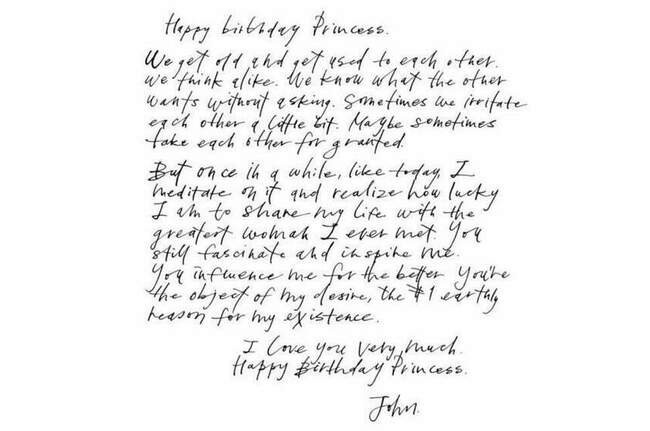 Happy birthday Princess.
We get old and get used to each other.
We think alike. We know what the other
wants without asking. Sometimes we irritate
each other a little bit. Maybe sometimes
take each other for granted.
But once in a while, like today, I
meditate on it and realize how lucky
I am to share my life with the
greatest woman I ever met. You
still fascinate and inspire me.
You influence me for the better. You're
the object of my desire, the #1 earthly
reason for my existence.
I love you very much.
Happy Birthday Princess.
John.